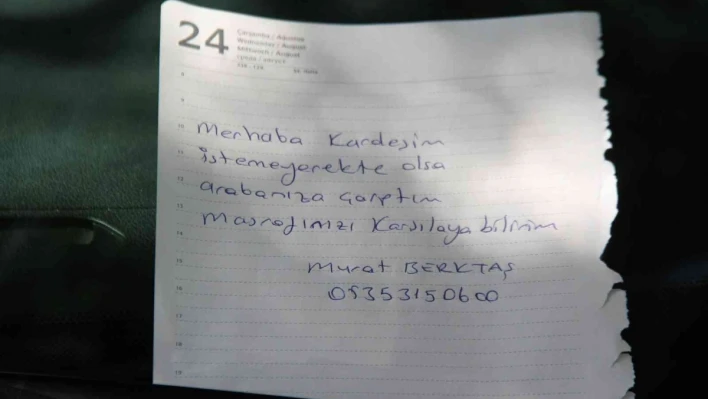 24
Çarşamba / Ağustos
Wednesday / August
Mittwoch / August
8
9
10
Merhaba Kardeşim
11
istemeyerekte olsa
12
arabanıza çarptım
13
masrafınızı Karşılaya bilirim
14
15
Murat BERKTAŞ
16
05353150600
17
18
19